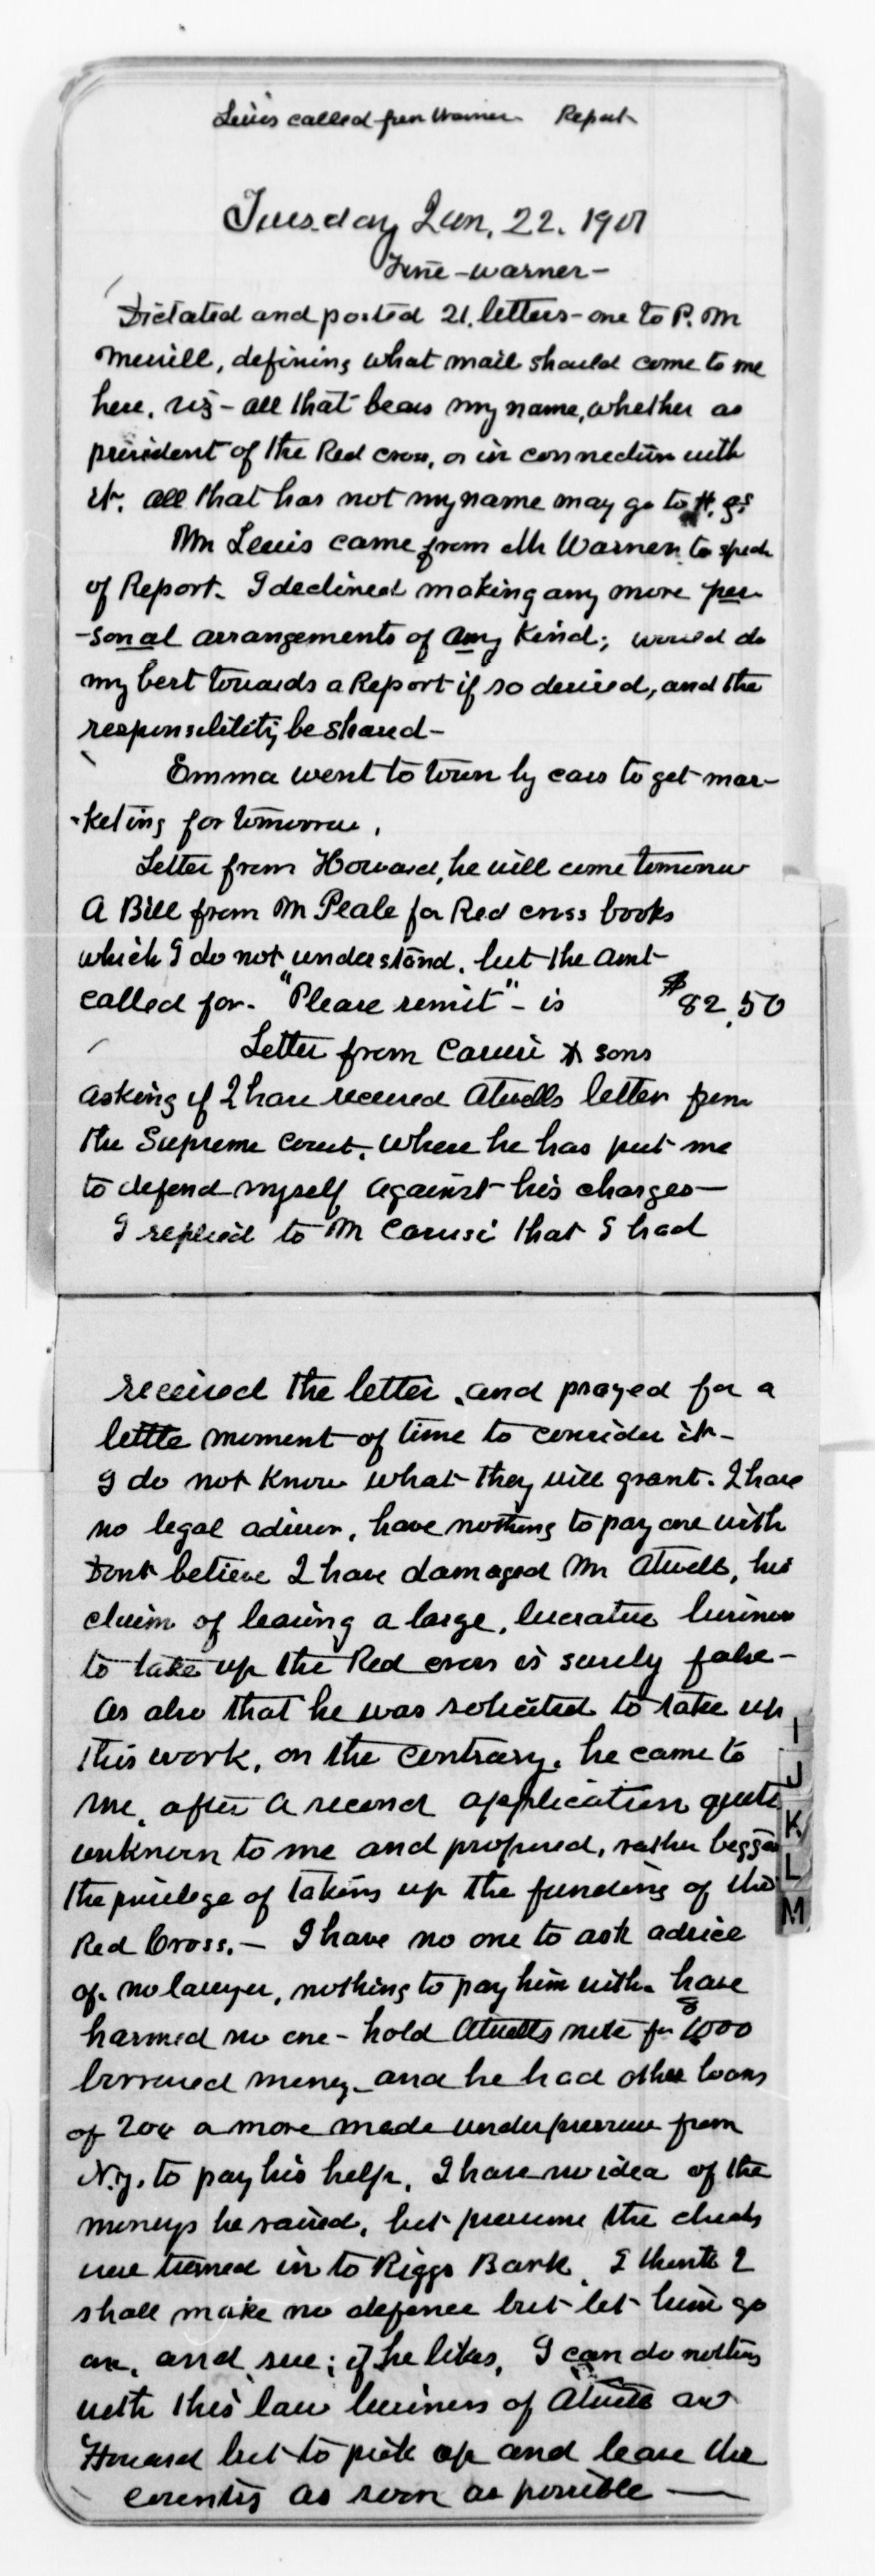 Lewis called from Warner Report
Tuesday Jan, 22. 1901
Fine - warner -
Dictated and posted 21. letters - one to P. M
Merrill, defining what mail should come to me
here. viz - all that bears my name, whether as
president of the Red cross, or in connection with
it. all that has not my name may go to H. Qs
Mr Lewis came from Mr Warner to speak
of Report. I declined making any more per-
-sonal arrangements of any kind; would do
my best towards a Report if so desired, and the
responsibility be shared -
Emma went to town by cars to get mar-
-keting for tomorrow,
Letter from Howard, he will come tomorrow
A Bill from Mr Peale for Red cross books
which I do not understand. but the amt
called for - "Please remit" - is $82.50
Letter from Carusi & sons
asking if I have received Atwells letter from
the Supreme Court. where he has put me
to defend myself against his charges -
I replied to Mr Carusi that I had
received the letter, and prayed for a
little moment of time to consider it -
I do not know what they will grant. I have
no legal adviser, have nothing to pay one with
Dont believe I have damaged Mr Atwell, his
claim of leaving a large, lucrative business
to take up the Red cross is surely false -
As also that he was solicited to take up
this work, on the contrary, he came to
me, after a second application quite
unknown to me and proposed, rather begged
the privilege of taking up the funding of the
Red Cross. - I have no one to ask advice
of - no lawyer, nothing to pay him with. have
harmed no one - hold Atwells note for $1000
borrowed money - and he had other loans
of 200 a more made under pressure from
N.Y. to pay his help, I have no idea of the
moneys he raised, but presume the checks
were turned in to Riggs Bank. I think I
shall make no defence but let him go
on, and sue; if he likes, I can do nothing
with this law business of Atwell and
Howard but to pick up and leave the
country as soon as possible -
I
J
K
L
M